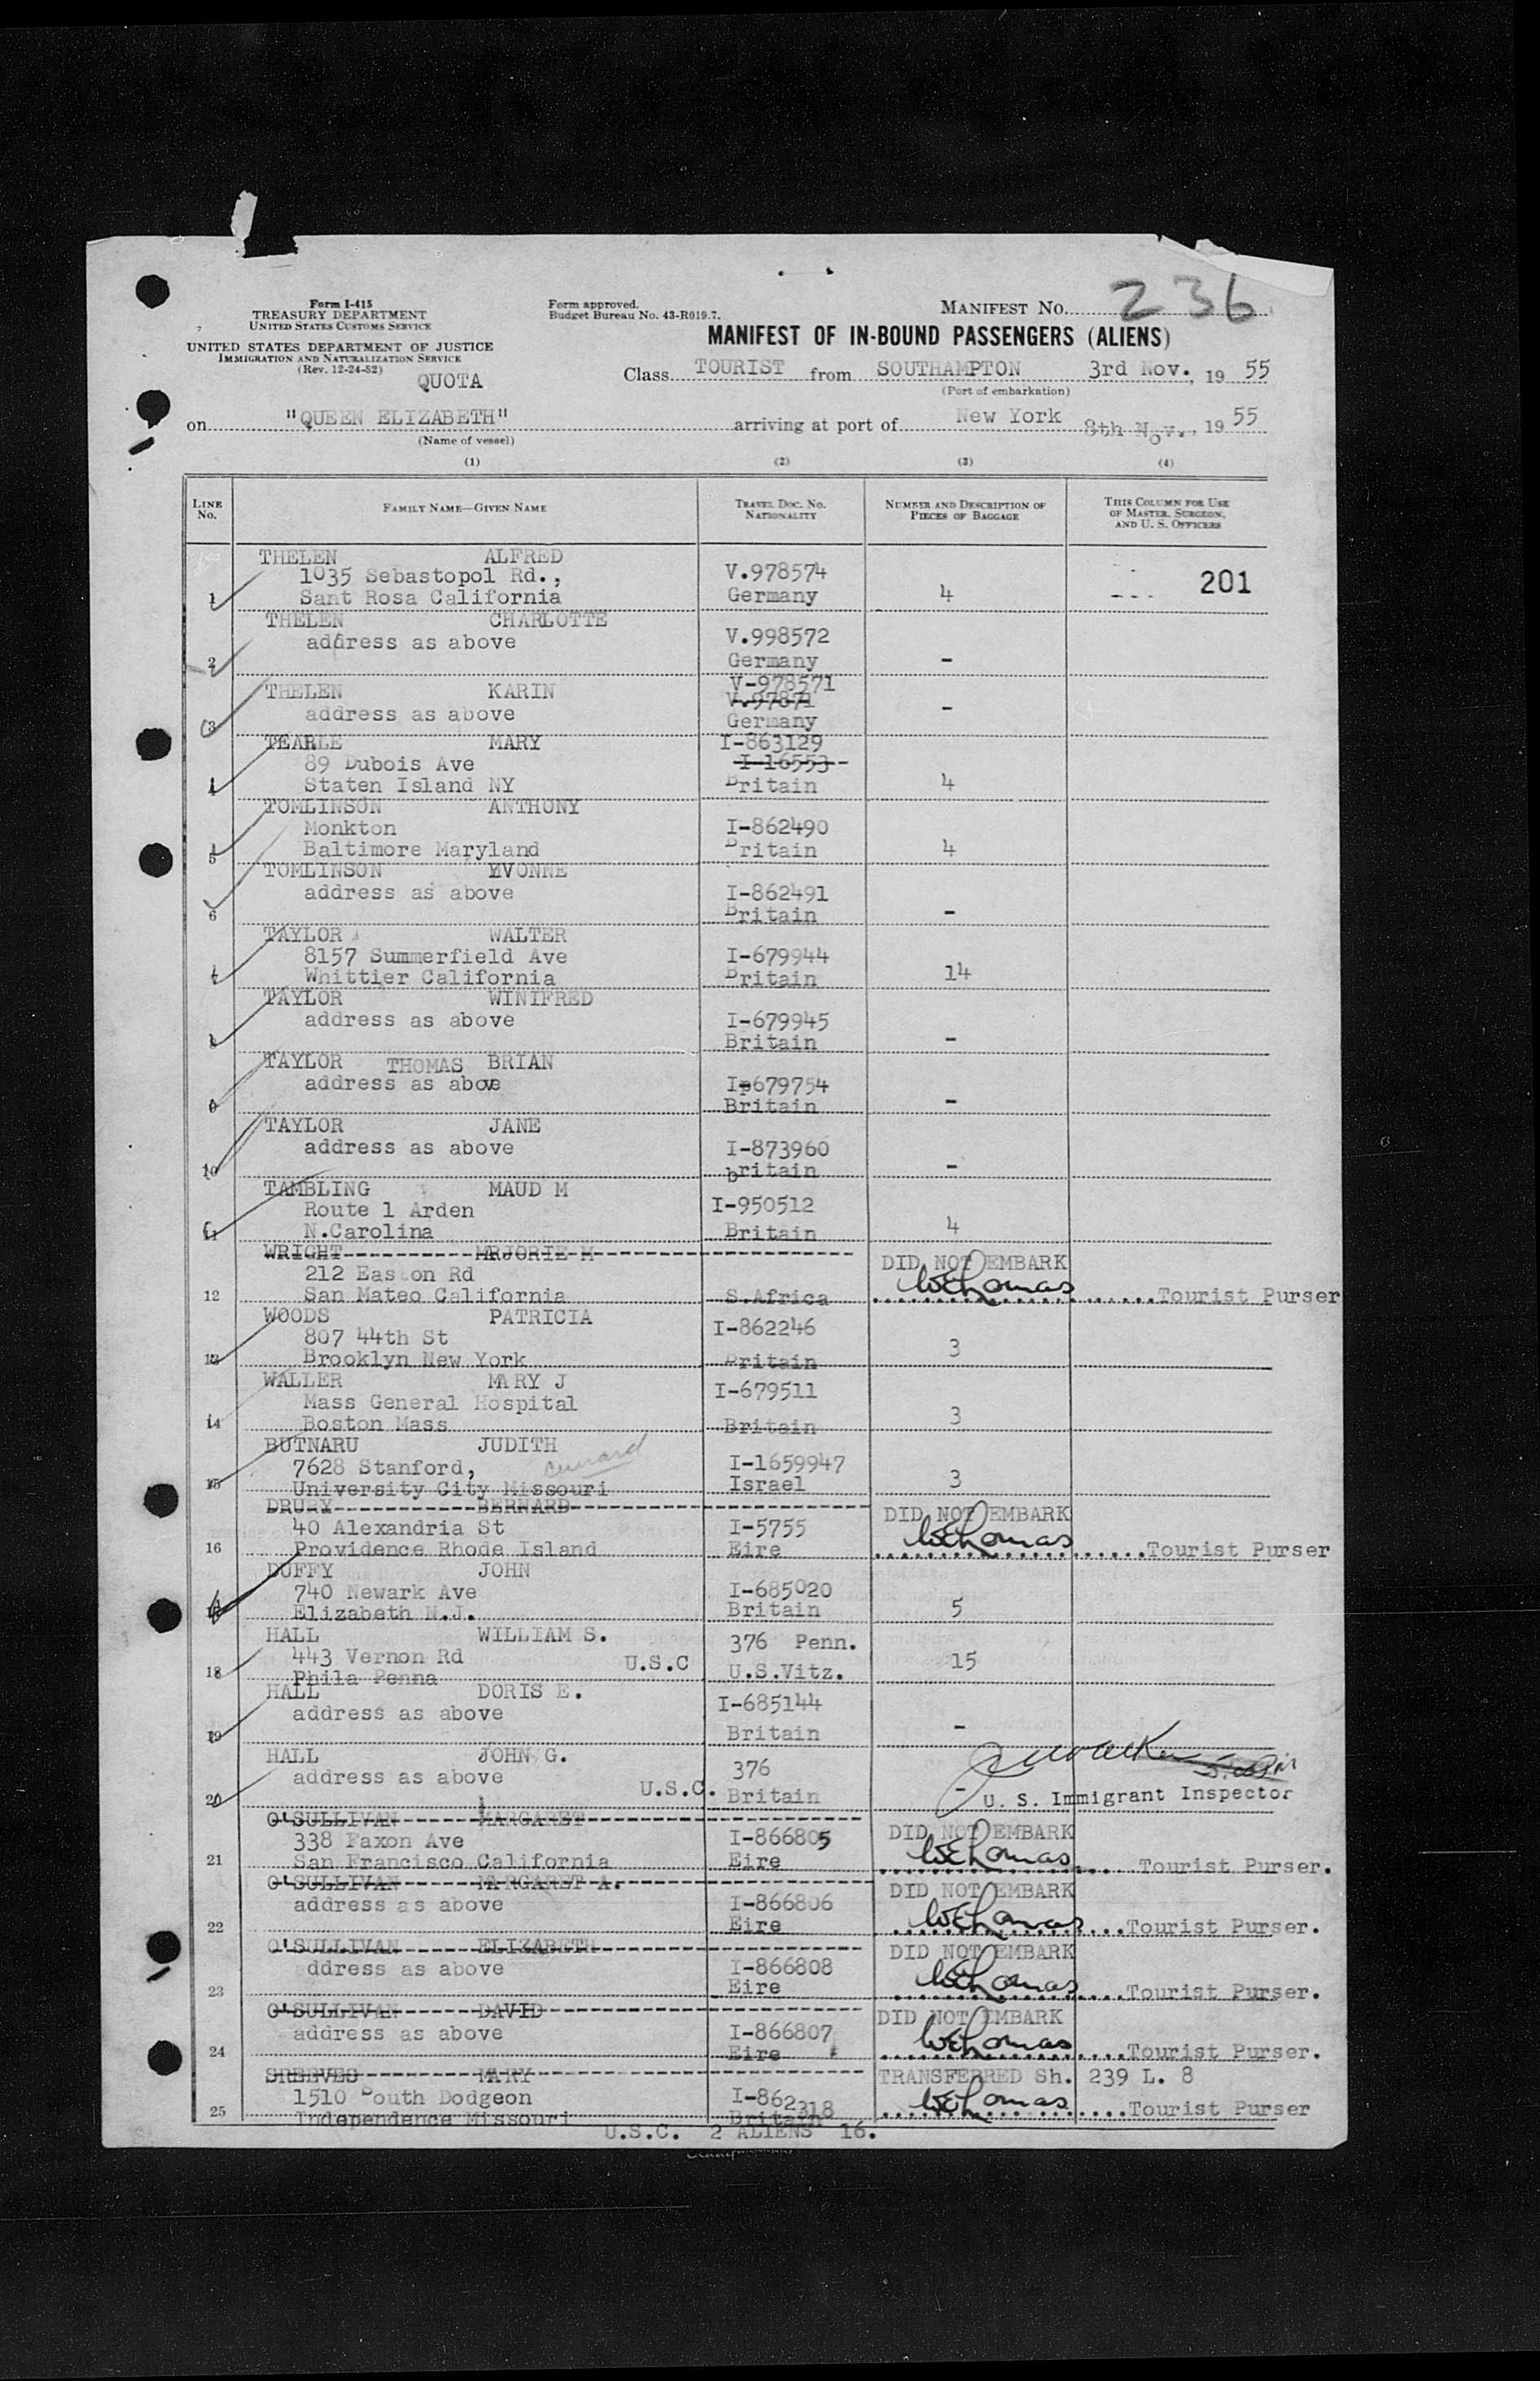 236
Form I-415
TREASURY DEPARTMENT
UNITED STATES CUSTOMS SERVICE
Form approved.
Budget Bureau No. 43-R019.7.
MANIFEST NO.
MANIFEST OF IN-BOUND PASSENGERS (ALIENS)
UNITED STATES DEPARTMENT OF JUSTICE
IMMIGRATION AND NATURALIZATION SERVICE
(Rev. 12-24-52)
QUOTA
Class TOURIST from SOUTHAMPTON 3rd Nov., 19 55
(Port of embarkation)
on "QUEEN ELIZABETH" arriving at port of New York 8th Nov., 19 55
(Name of vessel)
(1) (2) (3) (4)
LINE No. FAMILY NAME—GIVEN NAME TRAVEL DOC. NO. NATIONALITY NUMBER AND DESCRIPTION OF PIECES OF BAGGAGE THIS COLUMN FOR USE OF MASTER, SURGEON, AND U. S. OFFICERS
THELEN ALFRED
1035 Sebastopol Rd., V.978574 201
1 Sant Rosa California Germany 4
THELEN CHARLOTTE
address as above V.998572
2 Germany -
V-978571
THELEN KARIN V.97871
address as above -
3 Germany
TEARLE MARY I-863129
89 Dubois Ave I-16553-
4 Staten Island NY Britain 4
TOMLINSON ANTHONY
Monkton I-862490
5 Baltimore Maryland Britain 4
TOMLINSON YVONNE
address as above I-862491
6 Britain -
TAYLOR WALTER
8157 Summerfield Ave I-679944
7 Whittier California Britain 14
TAYLOR WINIFRED
address as above I-679945
8 Britain -
TAYLOR THOMAS BRIAN
address as above I-679754
9 Britain -
TAYLOR JANE
address as above I-873960
10 britain -
TAMBLING MAUD M
Route 1 Arden I-950512
11 N.Carolina Britain 4
WRIGHT MRJORIE M DID NOT EMBARK
212 Easton Rd WEThomas
12 San Mateo California S.Africa Tourist Purser
WOODS PATRICIA
807 44th St I-862246
13 Brooklyn New York Britain 3
WALLER MARY J
Mass General Hospital I-679511
14 Boston Mass Britain 3
BUTNARU JUDITH
cunard
7628 Stanford, I-1659947
15 University City Missouri Israel 3
DRURY BERNARD DID NOT EMBARK
40 Alexandria St I-5755 WEThomas
16 Providence Rhode Island Eire Tourist Purser
DUFFY JOHN
740 Newark Ave I-685020
17 Elizabeth N.J. Britain 5
HALL WILLIAM S. 376 Penn.
443 Vernon Rd U.S.C 15
18 Phila Penna U.S.Vitz.
HALL DORIS E. I-685144
address as above
19 Britain -
HALL JOHN G. 376
address as above
20 U.S.C. Britain - U. S. Immigrant Inspector
O'SULLIVAN MARGARET DID NOT EMBARK
338 Faxon Ave I-866805 WEThomas
21 San Francisco California Eire Tourist Purser.
O'SULLIVAN MARGARET A. DID NOT EMBARK
address as above I-866806 WEThomas
22 Eire Tourist Purser.
O'SULLIVAN ELIZABETH DID NOT EMBARK
ddress as above I-866808 WEThomas
23 Eire Tourist Purser.
O'SULLIVAN DAVID DID NOT EMBARK
address as above I-866807 WEThomas
24 Eire Tourist Purser.
SREEVES MARY TRANSFERRED Sh. 239 L. 8
1510 South Dodgeon I-862318 WEThomas
25 Independence Missouri Britain Tourist Purser
U.S.C. 2 ALIENS 16.